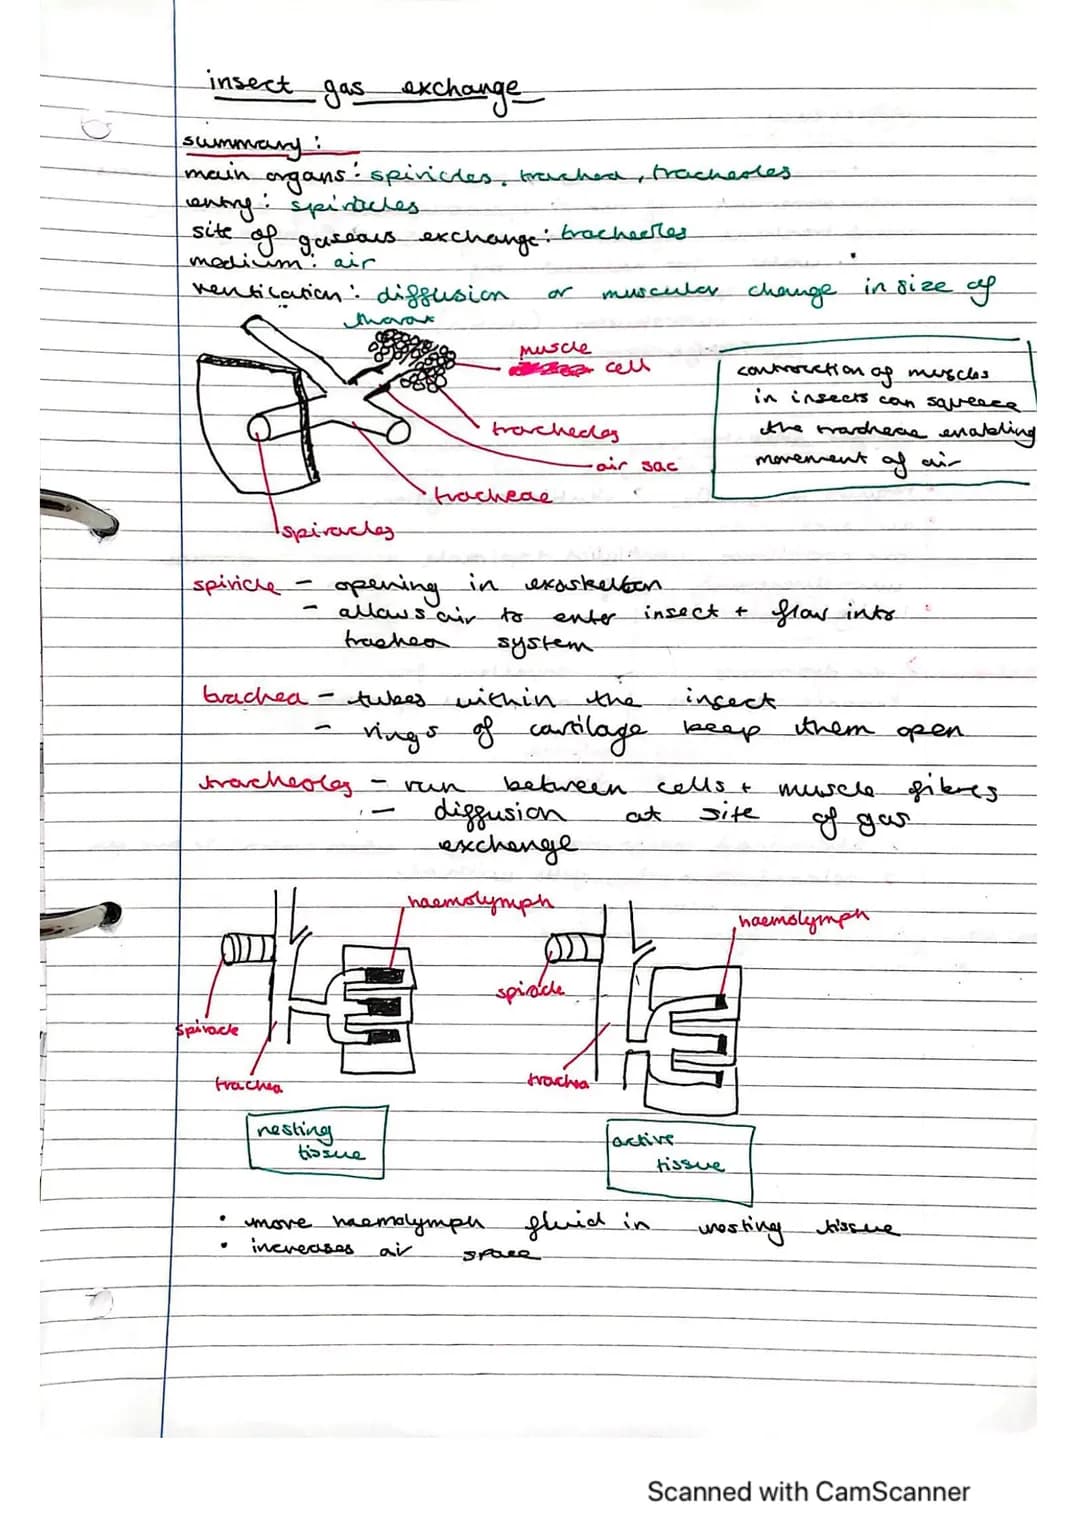 insect gas exchange
summary :
main organs : spiricles, trachea, tracheoles
entry : spiracles
site of gaseous exchange : tracheoles
medium : air
ventilation : diffusion or muscular change in size of
thorax
muscle
cell
tracheoles
air sac
tracheae
spiracles
contraction of muscles
in insects can squeeze
the tracheae enabling
movement of air
spiricle - opening in exoskeleton
- allows air to enter insect + flow into
trachea system
trachea - tubes within the insect
- rings of cartilage keep them open
tracheoles - run between cells + muscle fibres
- diffusion at site of gas
exchange
haemolymph
spiracle
trachea
resting
tissue
haemolymph
spiracle
trachea
active
tissue
• more haemolymph fluid in resting tissue
• increases air space
Scanned with CamScanner